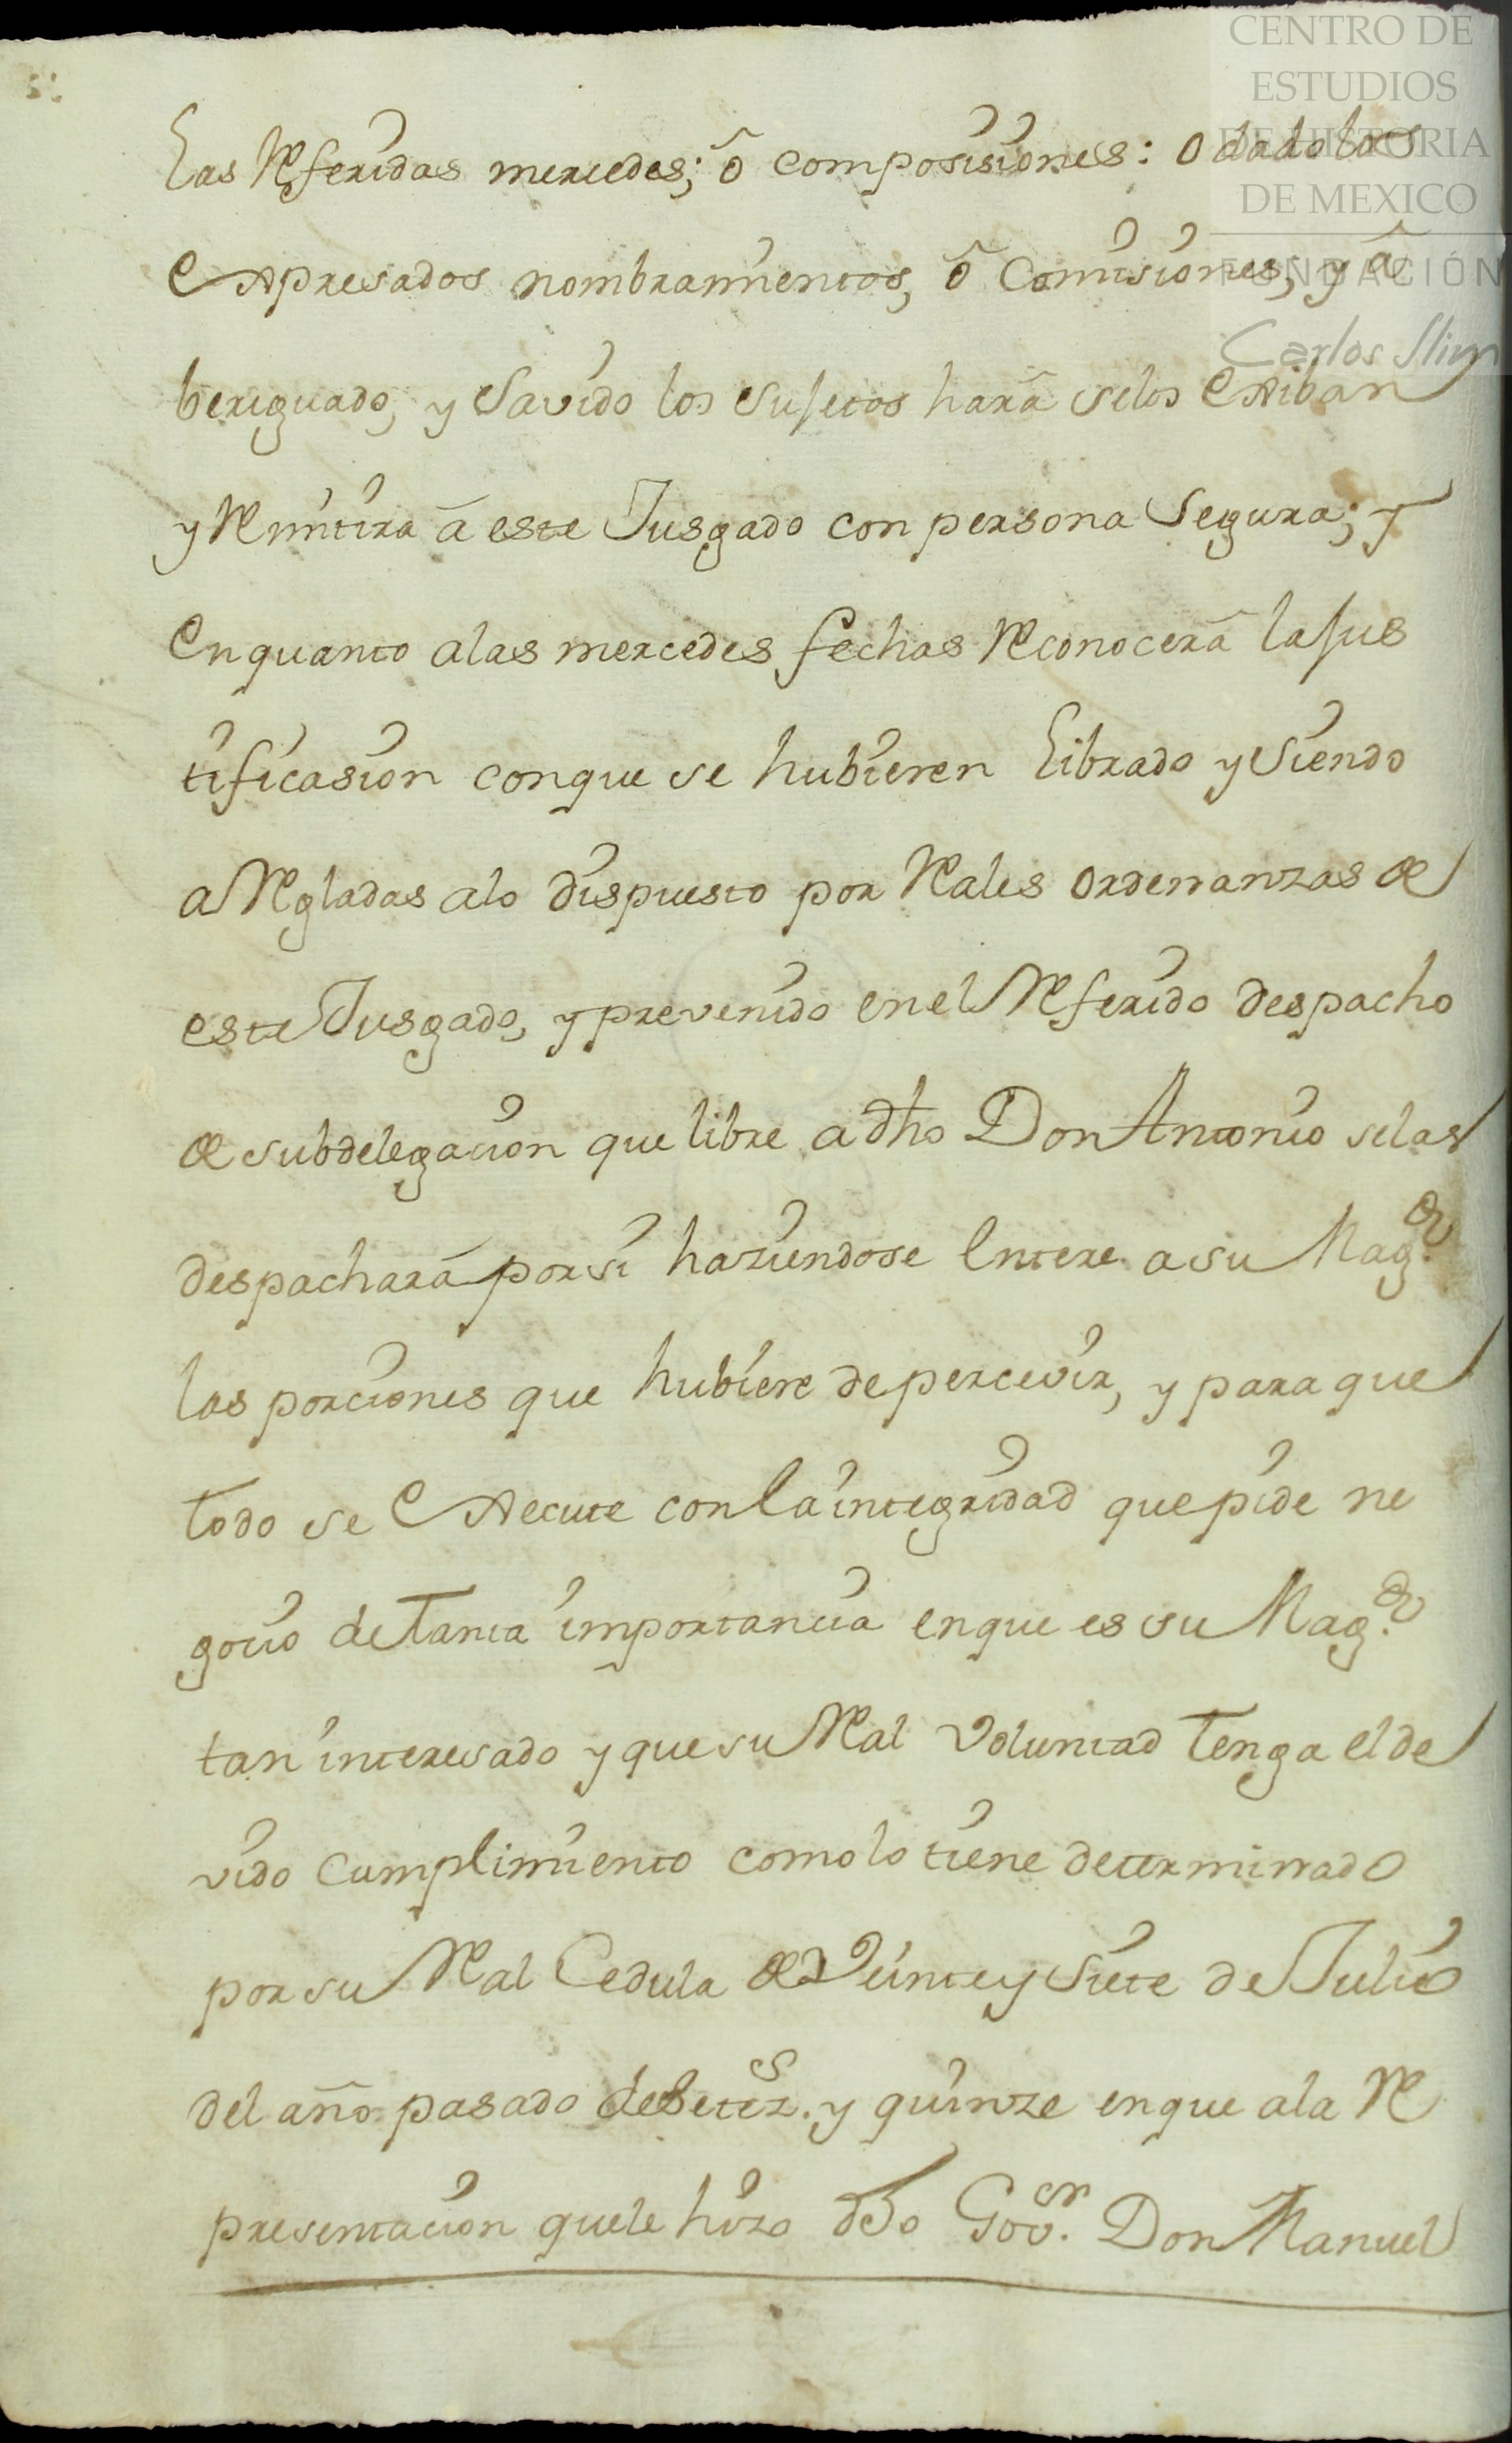 CENTRO DE
ESTUDIOS
DE HISTORIA
DE MEXICO
FUNDACIÓN
Carlos Slim
las Referidas mercedes; ô composisiones: o dado los
expresados nombramientos, ô Comisiones, y â
beriguado, y Savido los Sujetos harâ selos exiban
y Remitira â este Jusgado con persona Segura; y
enquanto alas mercedes fechas Reconocerâ lajus
tificasion conque se hubieren librado y Siendo
aRegladas alo dispuesto por Reales ordenanzas de
este Jusgado, y prevenido enel Referido despacho
de subdelegacion que libre a dho Don Antonio selas
despachará porsi haziendose entere asu Magd.
las porciones que hubiere depercevir, y paraque
todo se execute conla integridad quepide ne
gocio detanta importancia enque es su Magd.
tan interesado y quesu Real Voluntad tenga elde
vido cumplimiento comolo tiene determinado
porsu Real Cedula de Veinte y Siete de Julio
del año pasado deSetezs. y quinze enque ala Re
presentacion quele hizo dho Govor. Don Manuel